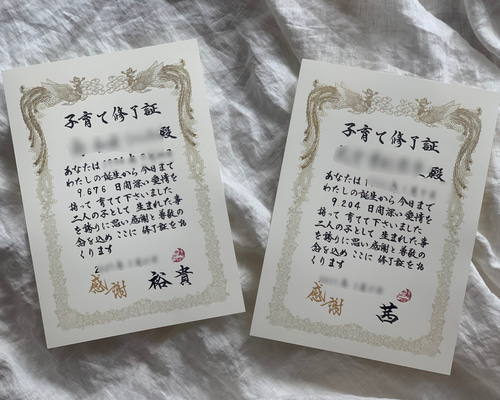 子育て修了証
殿
あなたは
わたしの誕生から今日まで
9,676 日間深い愛情を
持って 育てて下さいました
二人の子として 生まれた事
を誇りに思い感謝と尊敬の
念を込め ここに 修了証をお
くります
感謝 裕貴
子育て修了証
殿
あなたは
わたしの誕生から今日まで
9,204 日間深い愛情を
持って 育てて下さいました
二人の子として 生まれた事
を誇りに思い感謝と尊敬の
念を込め ここに 修了証をお
くります
感謝 茜